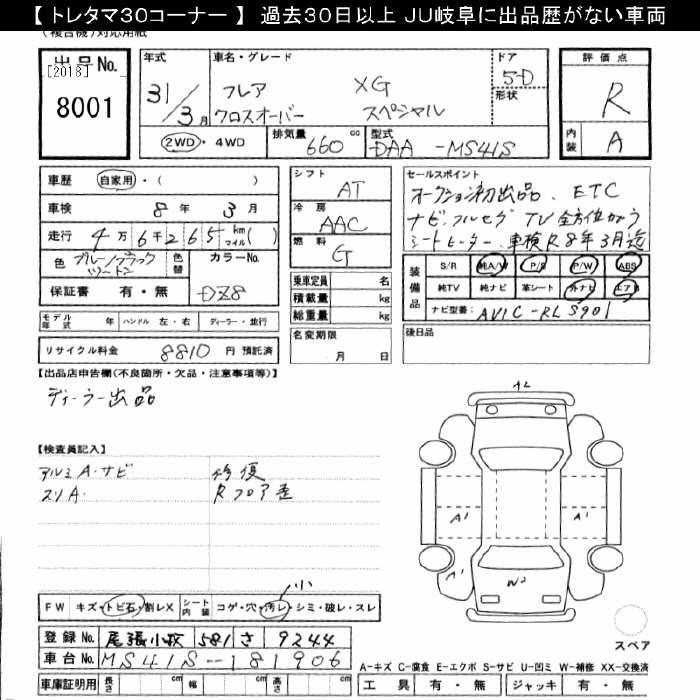 【 トレタマ30コーナー 】 過去30日以上 JU岐阜に出品歴がない車両
(複合機)対応用紙
出品No.
[2018]
8001
年式
31/3月
車名・グレード
フレア XG
クロスオーバー スペシャル
ドア
5-D
形状
評価点
R
内装
A
2WD・4WD
排気量
660 cc
型式
DAA -MS41S
車歴 自家用・( )
車検 8年 3月
走行 4万6千265 km マイル( )
色 ブルー/ブラック ツートン
色替
カラーNo.
DZ8
保証書 有・無
シフト
AT
冷房
AAC
燃料
G
乗車定員 名
積載量 kg
総重量 kg
名変期限
月 日
セールスポイント
オークション初出品. ETC
ナビ.フルセグTV 全方位カメラ
シートヒーター. 車検R8年3月迄
装備品
S/R 純A/W P/S P/W ABS
純TV 純ナビ 革シート 外ナビ エアB
ナビ型番: AVIC-RLS901
後日品
モデル年式 年 ハンドル 左・右 ディーラー・並行
リサイクル料金 8810 円 預託済
【出品店申告欄(不良箇所・欠品・注意事項等)】
ディーラー出品
【検査員記入】
アルミA・サビ
スリA.
修復
Rフロア歪
AL
A1
A1
A1
W2
小
FW キズ・トビ石・割レX
シート内装 コゲ・穴・汚レ・シミ・破レ・スレ
スペア
登録No. 尾張小牧 581 さ 9244
車台No. MS41S-181906
車庫証明用 長さ cm 幅 cm 高さ cm
A-キズ C-腐食 E-エクボ S-サビ U-凹ミ W-補修 XX-交換済
工具 有・無 ジャッキ 有・無